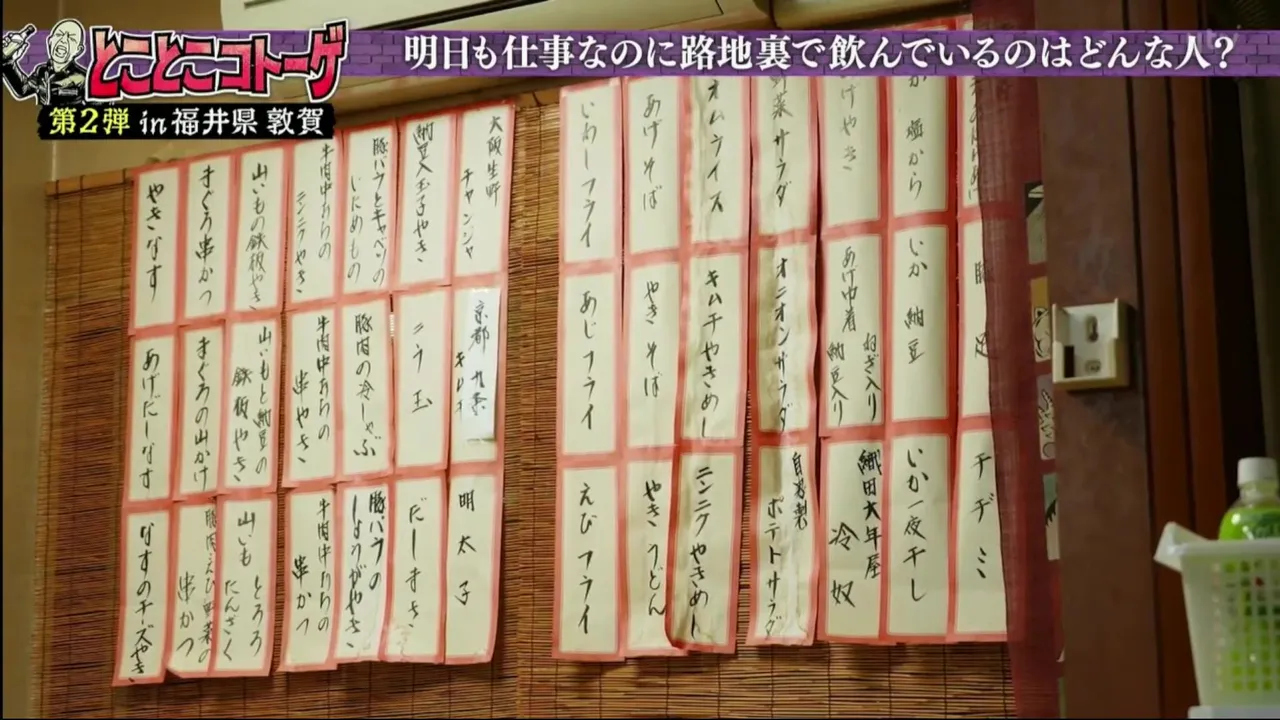 とことこコトーゲ
第2弾 in 福井県 敦賀
明日も仕事なのに路地裏で飲んでいるのはどんな人？
豚足
チヂミ
いか 塩から
いか 納豆
いか一夜干し
あげ巾着 ねぎ入り 納豆入り
織田大年屋 冷奴
野菜サラダ
オニオンサラダ
自家製 ポテトサラダ
オムライス
キムチやきめし
ニンニクやきめし
あげそば
やきそば
やきうどん
いわしフライ
あじフライ
えびフライ
大阪生野 チャンジャ
京都 九条
明太子
納豆入玉子やき
ニラ玉
だしまき
豚バラとキャベツの
豚肉の冷しゃぶ
豚バラの しょうがやき
牛肉中おちの ニンニクやき
牛肉中おちの 串やき
牛肉中おちの 串かつ
山いもの鉄板やき
山いもと納豆の 鉄板やき
山いも とろろ たんざく
まぐろ串かつ
まぐろの山かけ
豚肉えび野菜の 串かつ
やきなす
あげだしなす
なすのチーズやき